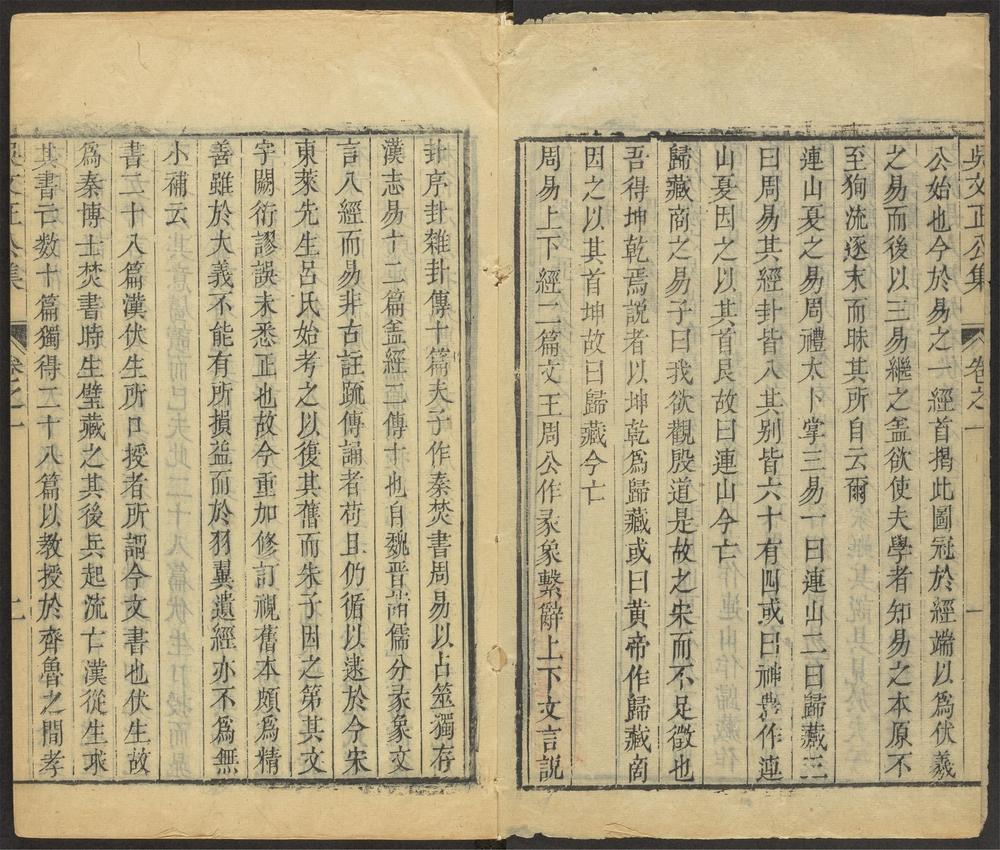 吳文正公集 卷之一 一
公始也今於易之一經首揭此圖冠於經端以為伏羲
之易而後以三易繼之盖欲使夫學者知易之本原不
至狥流逐末而昧其所自云爾
連山夏之易周禮太卜掌三易一曰連山二曰歸藏三
曰周易其經卦皆八其別皆六十有四或曰神農作連
山夏因之以其首艮故曰連山今亡
歸藏商之易子曰我欲觀殷道是故之宋而不足徵也
吾得坤乾焉說者以坤乾為歸藏或曰黃帝作歸藏商
因之以其首坤故曰歸藏今亡
周易上下經二篇文王周公作彖象繫辭上下文言說
卦序卦雜卦傳十篇夫子作秦焚書周易以占筮獨存
漢志易十二篇盖經二傳十也自魏晋諸儒分彖象文
言入經而易非古註疏傳誦者苟且仍循以逮於今宋
東萊先生呂氏始考之以復其舊而朱子因之第其文
字闕衍謬誤未悉正也故今重加修訂視舊本頗為精
善雖於大義不能有所損益而於羽翼遺經亦不為無
小補云
書二十八篇漢伏生所口授者所謂今文書也伏生故
為秦博士焚書時生壁藏之其後兵起流亡漢定生求
其書亡數十篇獨得二十八篇以教授於齊魯之間孝
吳文正公集 卷之一 二